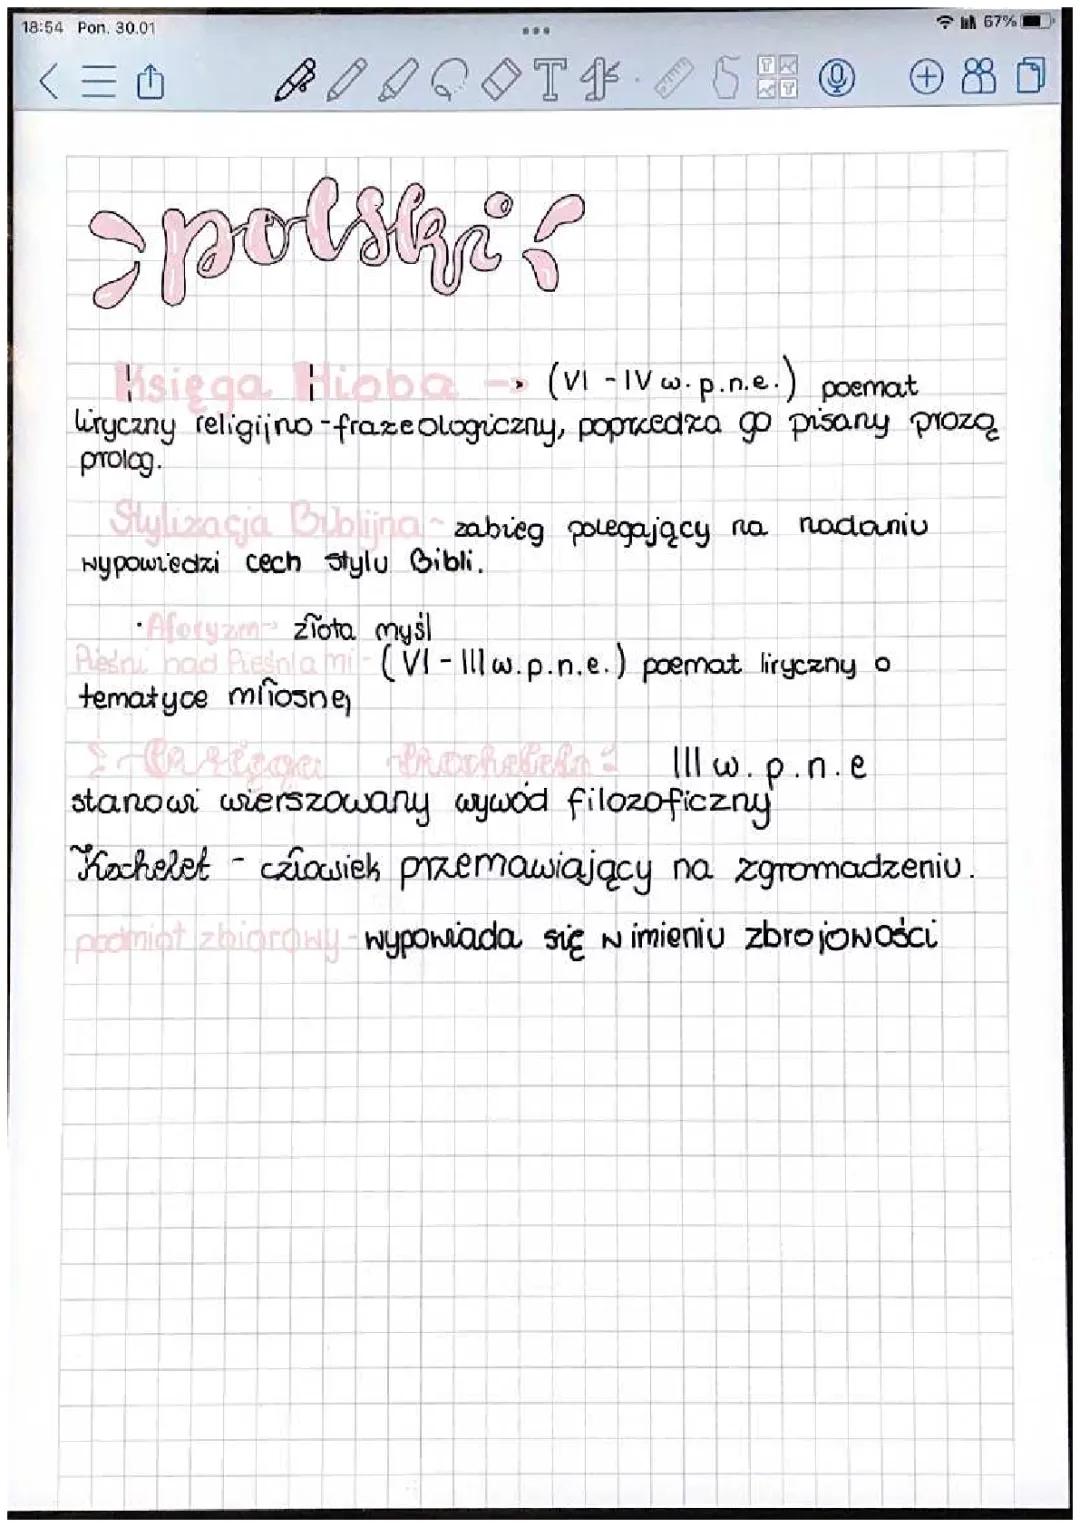 18:54 Pon. 30.01
67%
polski
Księga Hioba -> (VI - IV w. p.n.e.) poemat
liryczny religijno-frazeologiczny, poprzedza go pisany prozą
prolog.
Stylizacja Biblijna - zabieg polegający na nadaniu
wypowiedzi cech stylu Bibli.
·Aforyzm- złota myśl
Pieśni nad Pieśniami - (VI - III w.p.n.e.) poemat liryczny o
tematyce miłosnej
Księga Kocheleta : III w.p.n.e
stanowi wierszowany wywód filozoficzny
Kochelet - człowiek przemawiający na zgromadzeniu.
podmiot zbiorowy - wypowiada się w imieniu zbrojowości